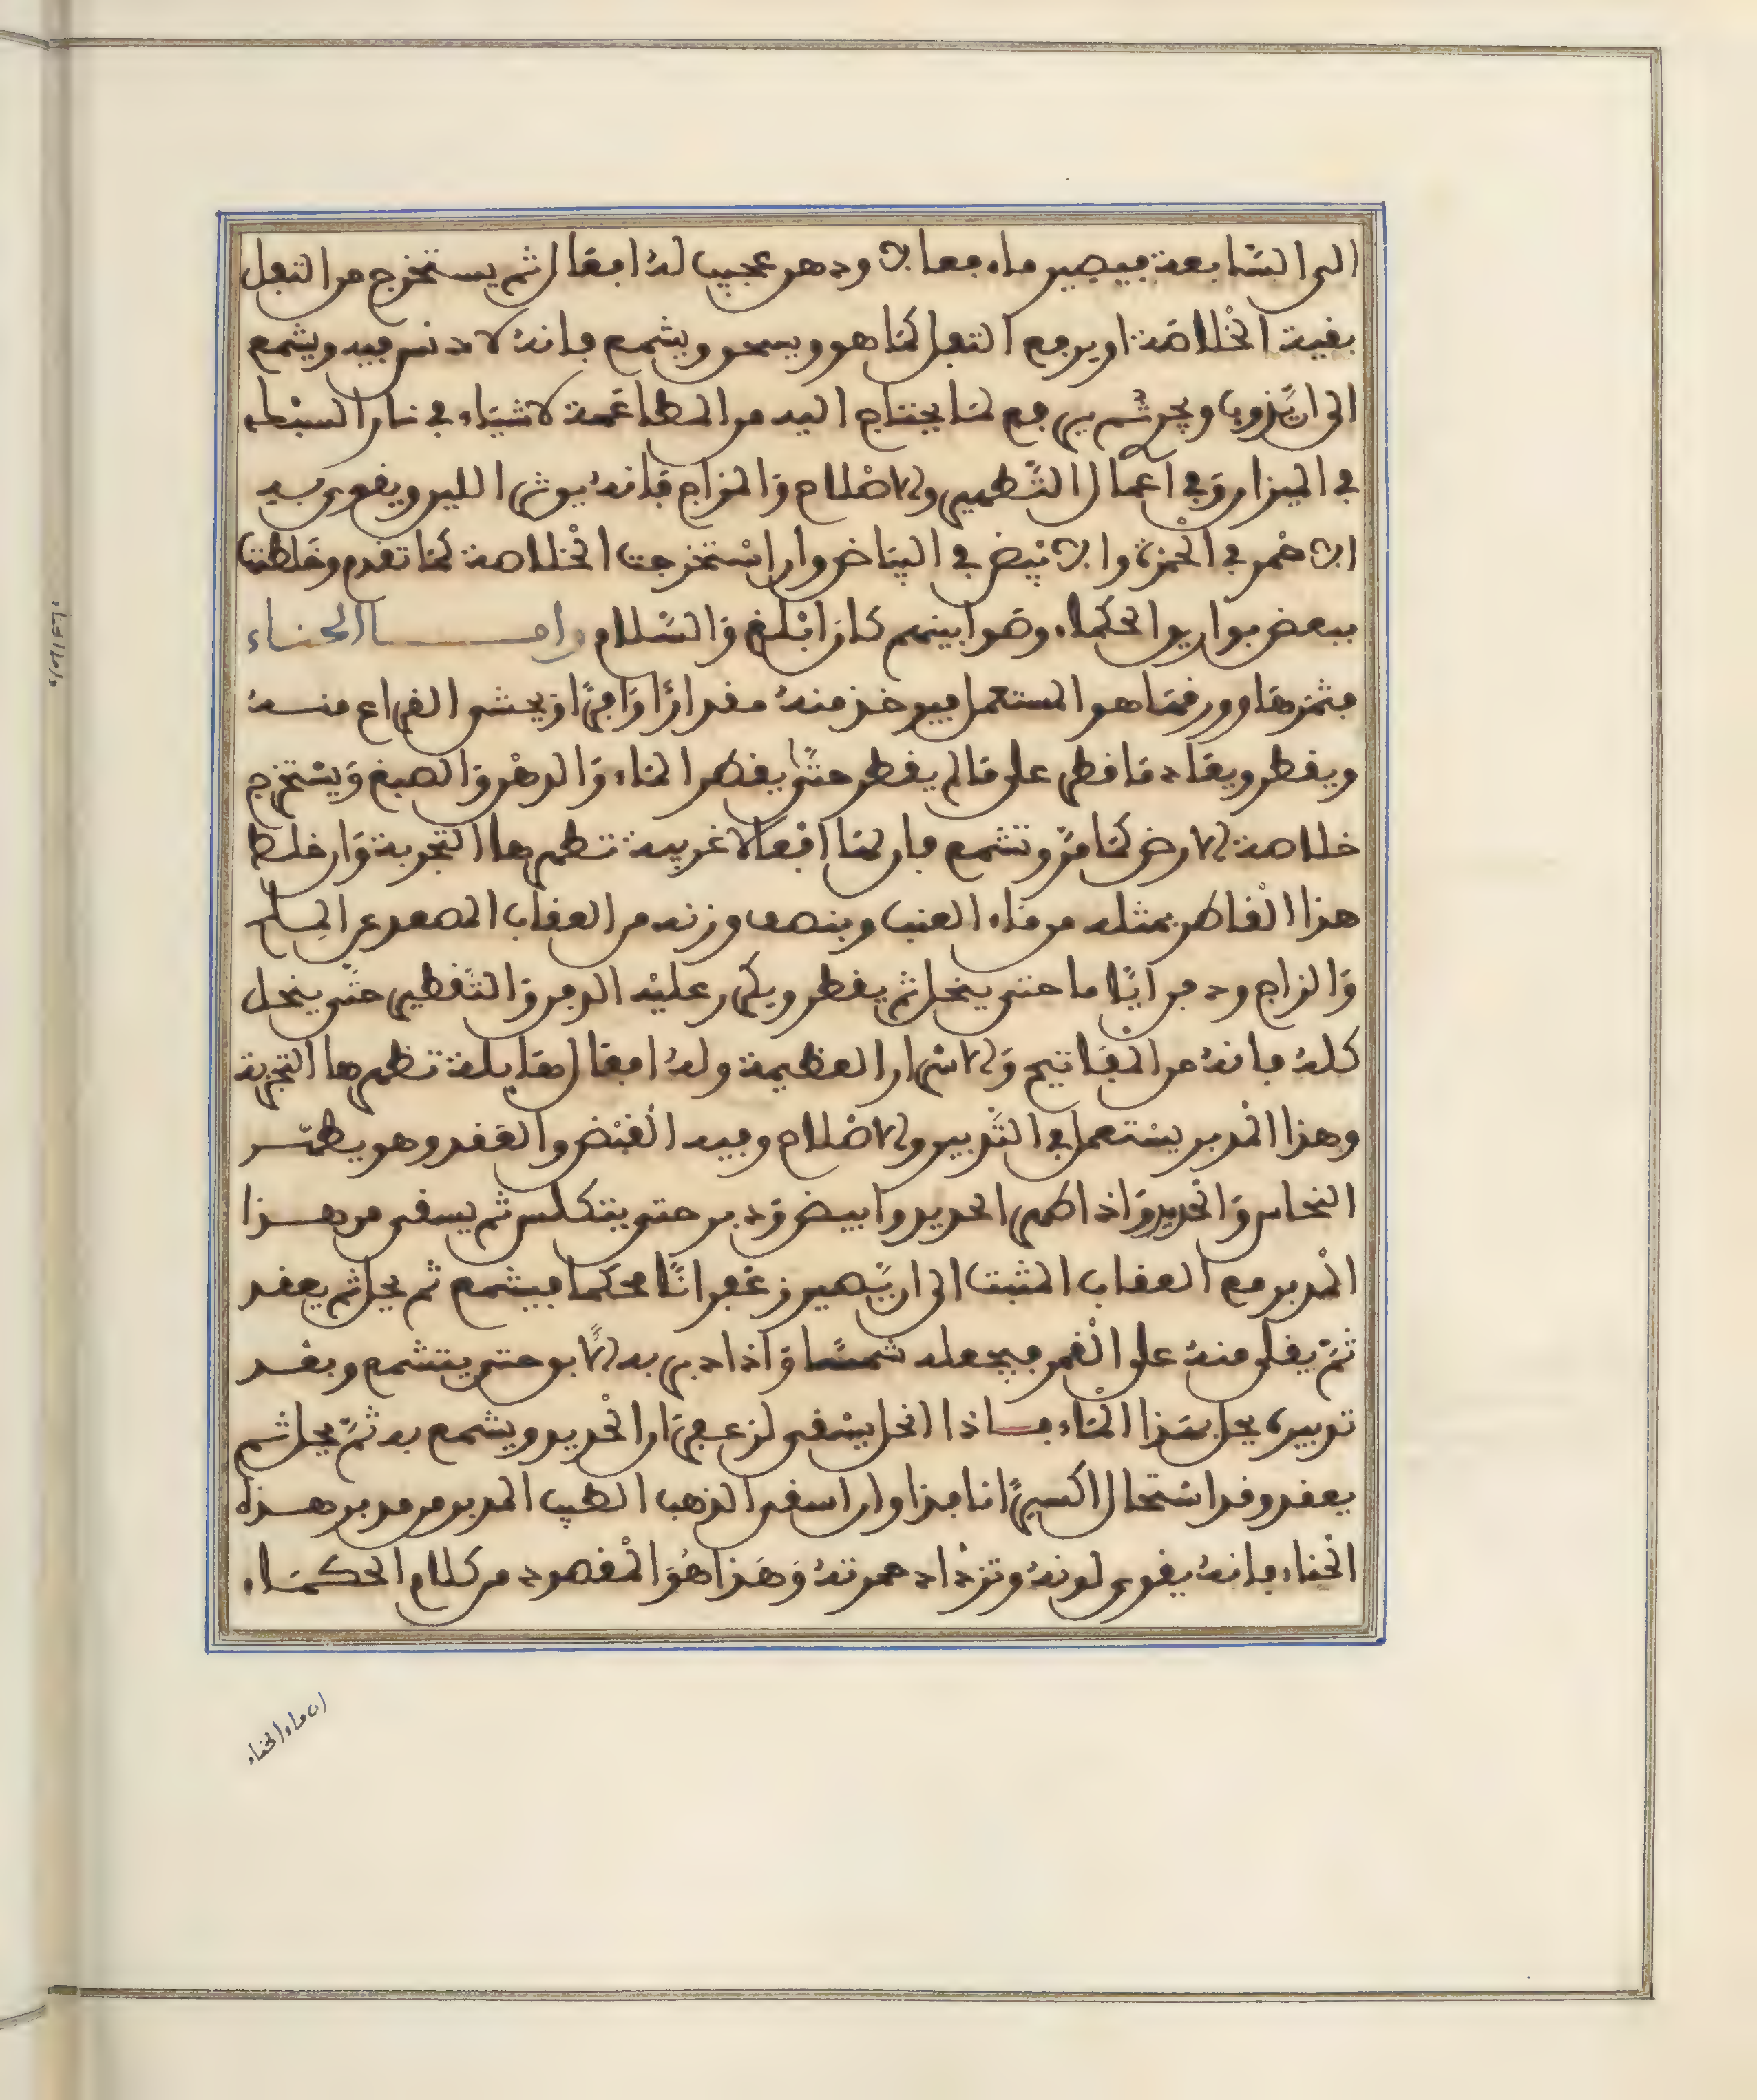 الى السابعة فيصير ماء فعالا ودهن عجيب له افعال ثم يستخرج من الثفل
بقية الخلاصة او يرجع الثفل كما هو ويسحق ويشمع فانه لا دنس فيه ويشمع
الى ان يذوب ويجري ثم يرجع لما يحتاج اليه من المطاعمة لاشياء في نار السبك
في الميزان وفي اعمال التطهير والاصلاح والمزاج فانه يورث اللين ويقوي سيد
الاحمر في الحمرة والابيض في البياض وان استخرجت الخلاصة كما تقدم وخلطت
ببعض بواريق الحكماء وصوابينهم كان ابلغ والسلام واما الحناء
فثمرها وورقها هو المستعمل فيوخذ منه مقدارا وافرا ويحشى القراع منه
ويقطر ويعاد ما قطر على ما لم يقطر حتى يقطر الماء والدهن والصبغ ويستخرج
خلاصة الارض كما مر وتشمع فان لها افعالا غريبة تظهرها التجربة وان خلط
هذا القاطر بمثله من ماء العنب وبنصف وزنه من العقاب المصعد عن الملح
والزاج ودفن اياما حتى ينحل ثم يقطر ويكرر عليه الدفن والتقطير حتى ينحل
كله فانه من المفاتيح والاسرار العظيمة وله افعال هايلة تظهرها التجربة
وهذا المدبر يستعمل في التدبير والاصلاح وفيه القبض والعقد وهو يطهر
النحاس والحديد واذا طهر الحديد وابيض ودبر حتى يتكلس ثم يسقى من هذا
المدبر مع العقاب المثبت الى ان يصير زعفرانا محكما فيشمع ثم يحل ثم يعقد
ثم يلقى منه على القمر فيجعله شمسا واذا دبر به الابق حتى يتشمع وبعد
تدبيره يحل بهذا الماء فاذا انحل يسقى لزعفران الحديد ويشمع به ثم يحل ثم
يعقد وقد استحال اكسيرا نافذا وان اسقى الذهب الطيب المدبر من مدبر هذه
الحناء فانه يقوي لونه وتزداد حمرته وهذا هو المقصود من كلام الحكماء
ان ماء الحناء